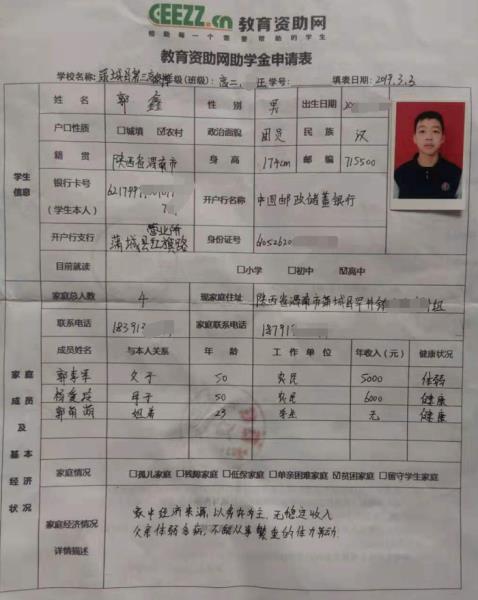 GEEZZ.cn 教育资助网
帮助每一个需要帮助的学生
教育资助网助学金申请表
学校名称: 蒲城县第三高 级(班级): 高二、 班 学号: 填表日期: 2019.3.3
学生信息
姓 名 郭鑫 性 别 男 出生日期
户口性质 □城镇 ☑农村 政治面貌 团员 民 族 汉
籍 贯 陕西省渭南市 身 高 174cm 邮 编 715500
银行卡号 (学生本人) 621799 开户行名称 中国邮政储蓄银行
开户行支行 蒲城县红旗路营业所 身份证号 6052620
目前就读 □小学 □初中 ☑高中
家庭成员及基本经济状况
家庭总人数 4 现家庭住址 陕西省渭南市蒲城县罕井镇 组
联系电话 18391 家庭联系电话 1879
成员姓名 与本人关系 年 龄 工 作 单 位 年收入(元) 健康状况
父子 50 农民 5000 体弱
母子 50 农民 6000 健康
郭萌萌 姐弟 23 学生 无 健康
家庭情况 □孤儿家庭 □残障家庭 □低保家庭 □单亲困难家庭 ☑贫困家庭 □留守学生家庭
家庭经济情况详情描述
家中经济来源,以务农为主,无稳定收入
父亲体弱多病,不能从事繁重的体力劳动.